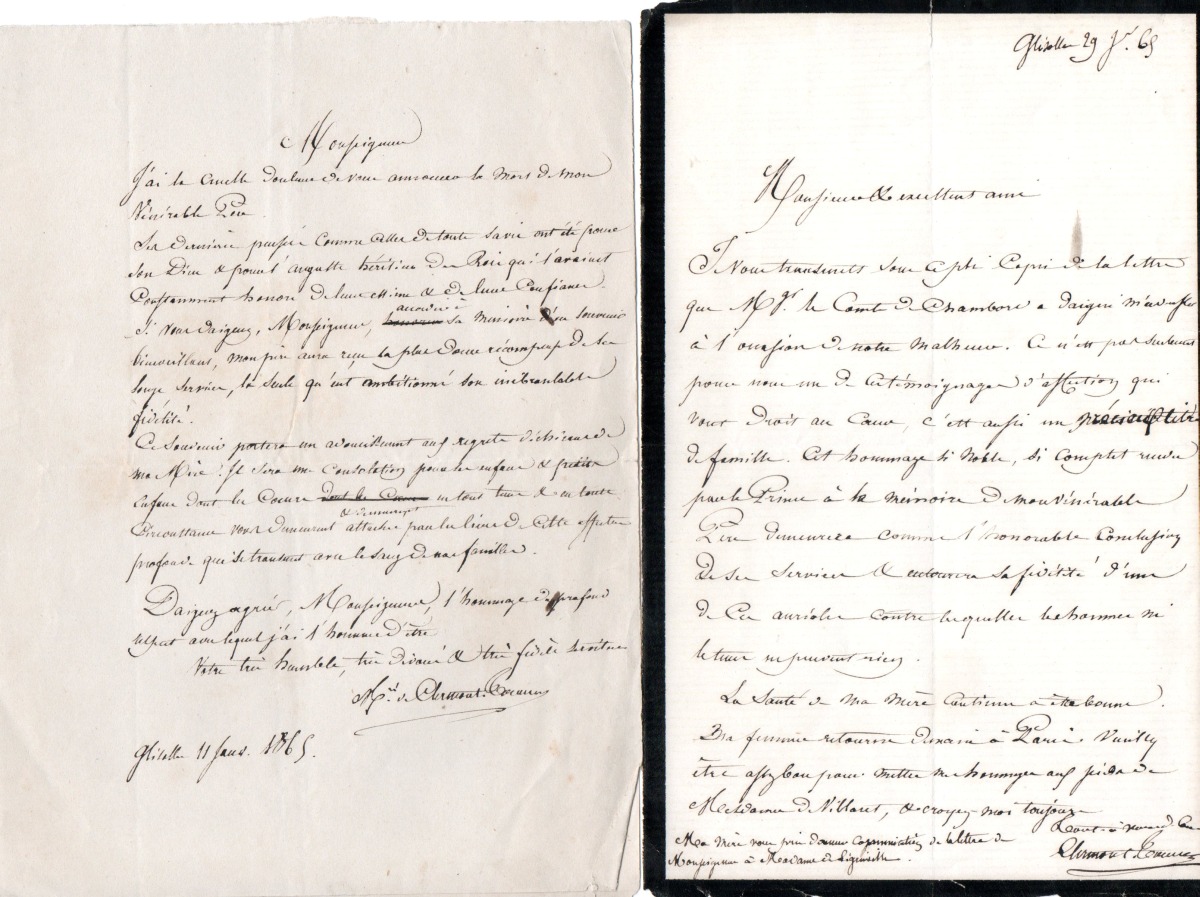 Monseigneur
J'ai la cruelle douleur de vous annoncer la mort de mon
Vénérable Père.
Ses dernières pensées comme celles de toute sa vie ont été pour
son Dieu & pour l'auguste héritier des Rois qui l'avaient
constamment honoré de leur estime & de leur confiance.
Si vous daignez, Monseigneur, accorder à sa mémoire un souvenir
bienveillant, mon père aura reçu la plus douce récompense de ses
longs services, la seule qu'ait ambitionné son inébranlable
fidélité.
Ce souvenir portera un adoucissement aux regrets déchirans de
ma Mère. Il sera une consolation pour les enfans & petits
enfans dont les Coeurs dont les Coeurs en tous tems & en toute
& demeureront
circonstance vous demeurent attachés par les liens de cette affection
profonde qui se transmet avec le sang de nos familles.
Daignez agréer, Monseigneur, l'hommage du profond
respect avec lequel j'ai l'honneur d'être
Votre très humble, très dévoué & très fidèle serviteur
Mis de Clermont-Tonnerre
Glisolles 11 Janv. 1865.
Glisolles 29 Jr. 65
Monsieur & excellent ami
Je vous transmets sous ce pli copie de la lettre
que Mgr. le Comte de Chambord a daigné m'adresser
à l'occasion de notre malheur. Ce n'est pas seulement
pour nous un de ces témoignages d'affection qui
vont droit au coeur, c'est aussi un précieux titre
de famille. Cet hommage si noble, si complet rendu
par le Prince à la mémoire de mon Vénérable
Père demeurera comme l'honorable conclusion
de ses services & entourera sa fidélité d'une
de ces auréoles contre lesquelles les hommes ni
le tems ne peuvent rien.
La santé de ma mère continue à être bonne.
Ma femme retourne demain à Paris. Veuillez
être assez bon pour mettre mes hommages aux pieds de
Madame de Villaret, & croyez-moi toujours
tout à vous de coeur
Clermont Tonnerre
Ma Mère vous prie donner communication de la lettre de
Monseigneur à Madame de